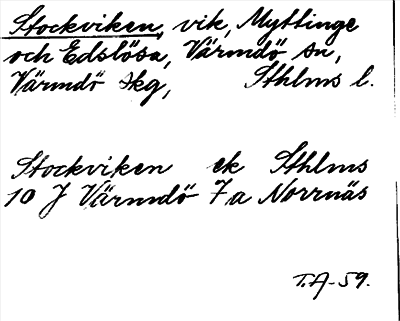 Stockviken, vik, Myttinge
och Edslösa, Värmdö sn,
Värmdö skg, Sthlms l.
Stockviken ek Sthlms
10 J Värmdö 7a Norrnäs
T.A-59.